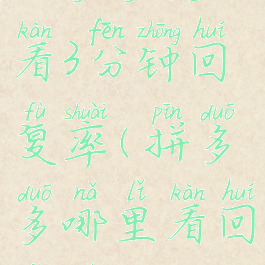 kàn fēn zhōng huí
看3分钟回
fù shuài pīn duō
复率(拼多
duō nǎ lǐ kàn huí
多哪里看回